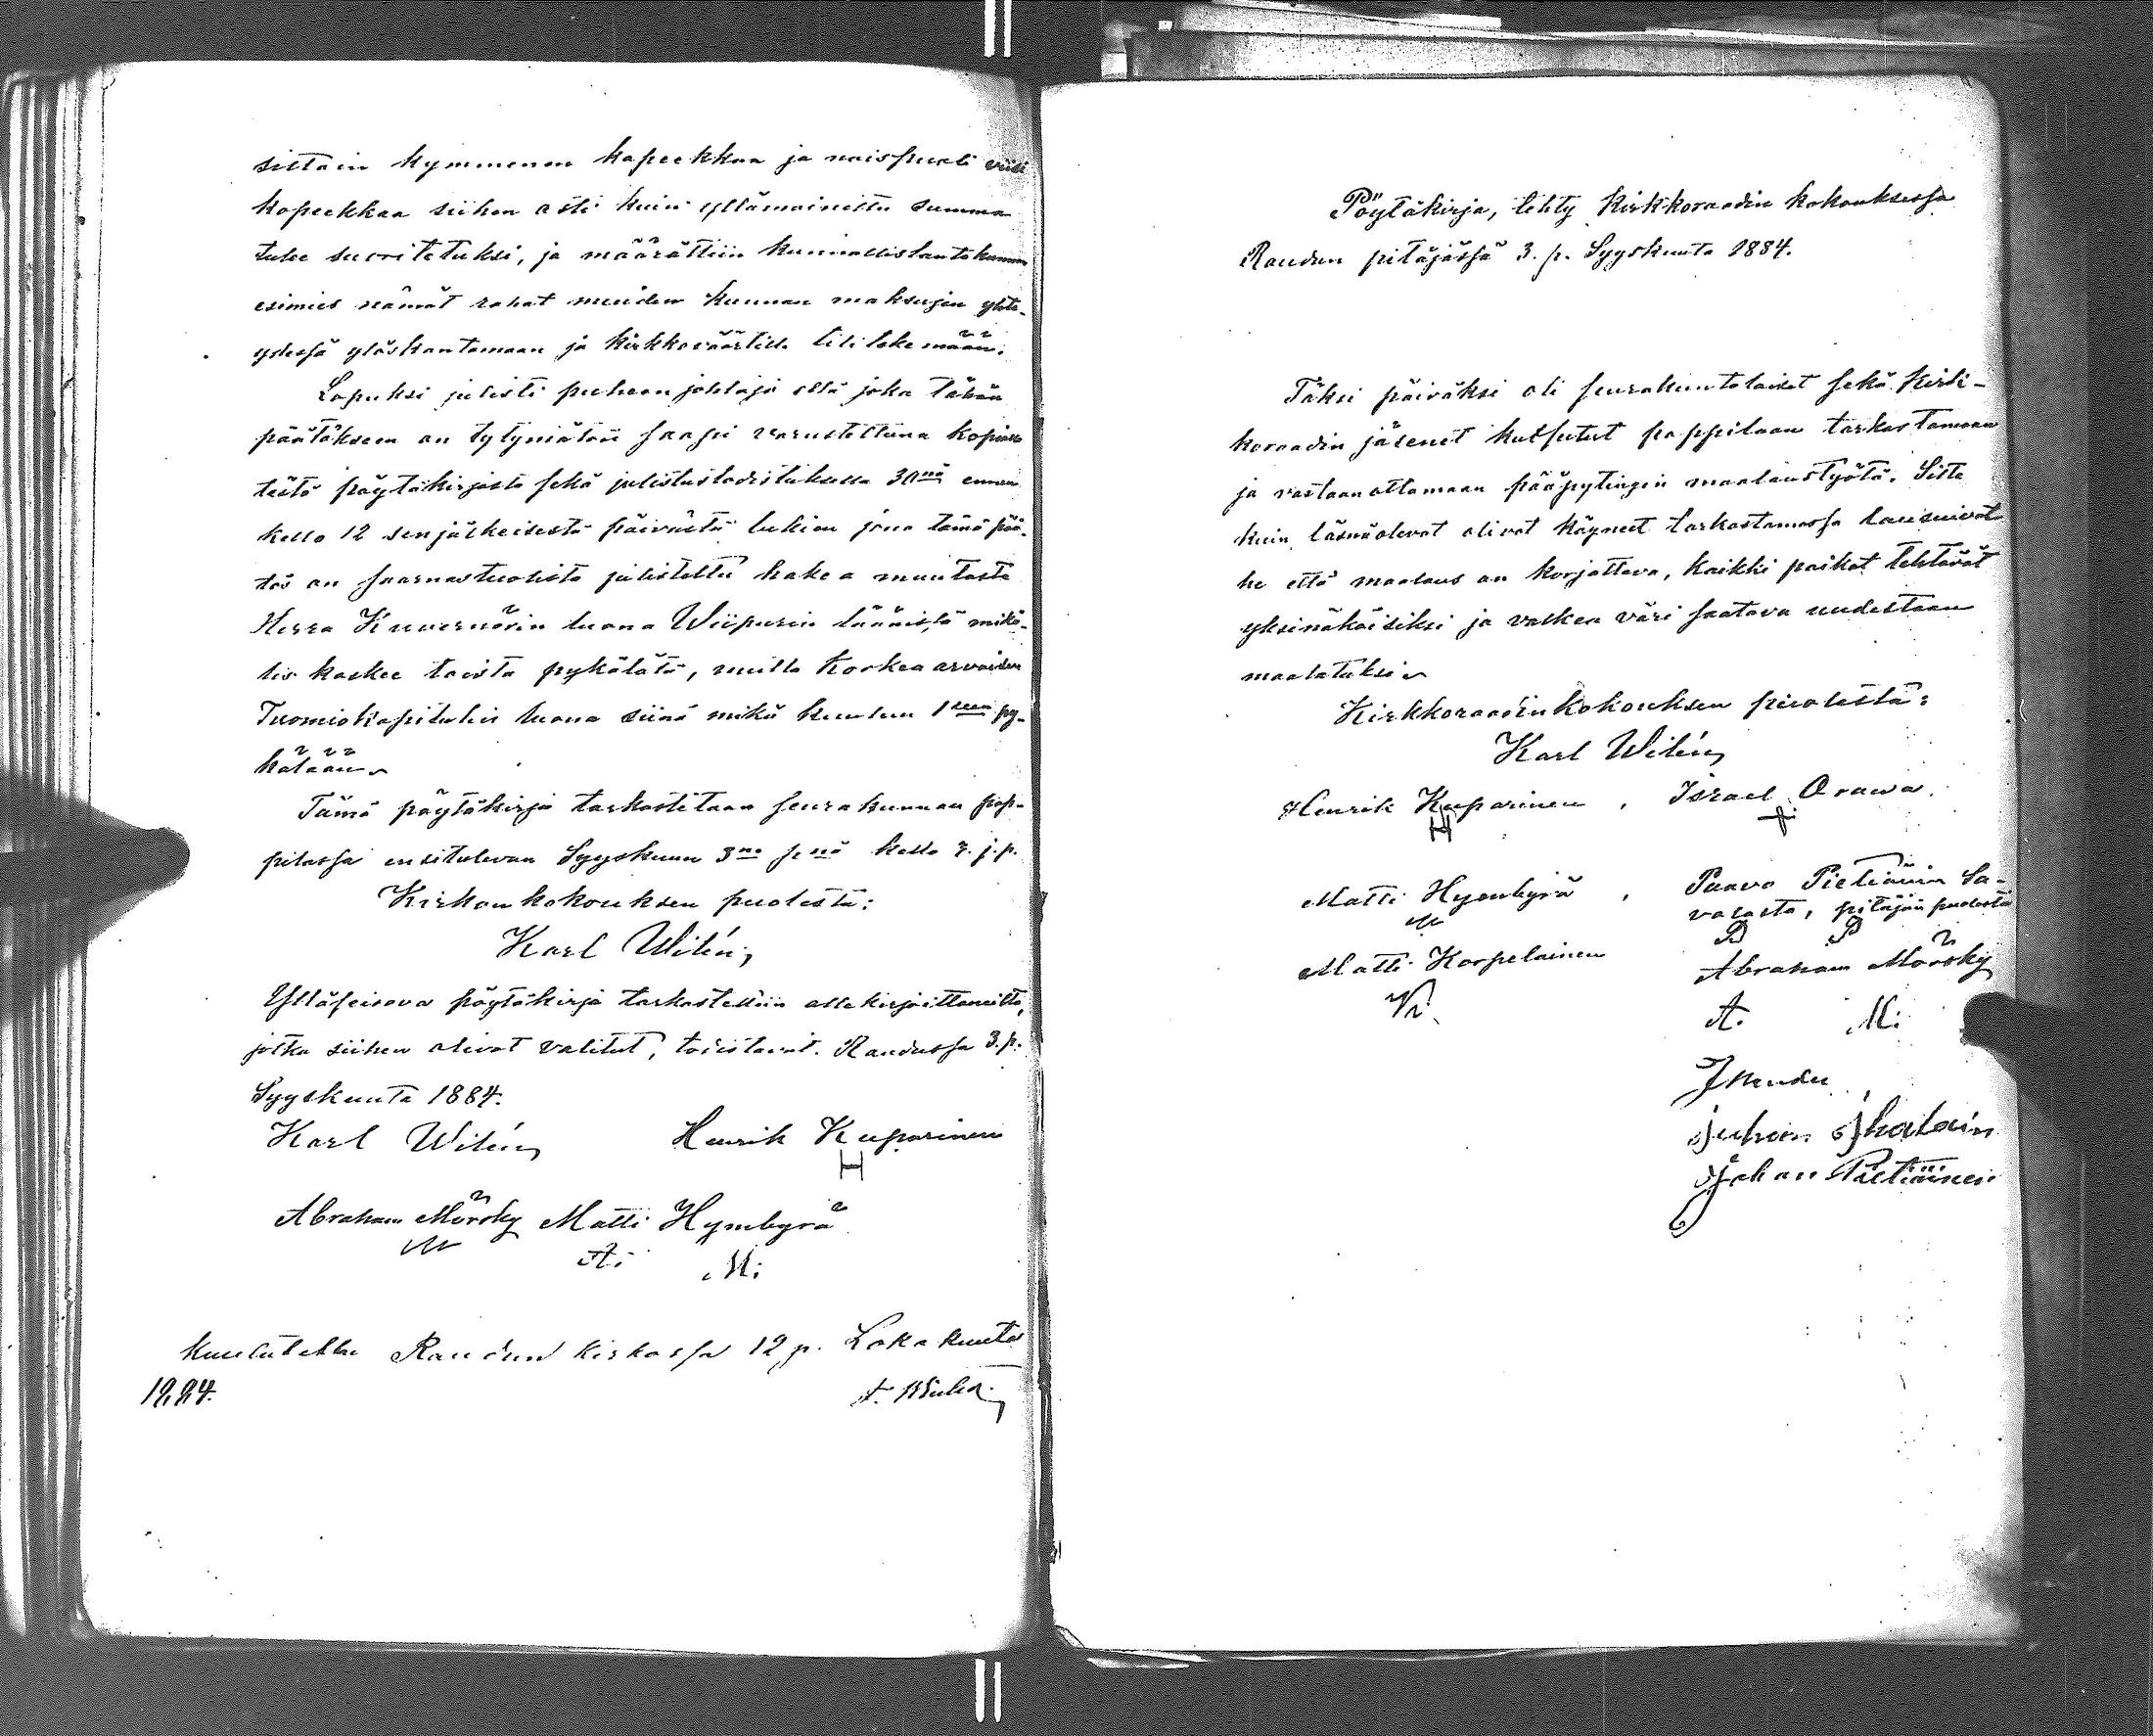 sittain kymmenen kopeekkaa ja naispuoli viisi
kopeekkaa siihen asti kuin yllämainittu summa
tulee suoritetuksi, ja määrättiin kunnallislautakunnan
esimies nämät rahat muiden kunnan maksujen yhte-
ydessä ylöskantamaan ja kirkkoväärtille tili tekemään.
Lopuksi julisti puheenjohtaja että joka tähän
päätökseen on tytymätön saapi varustettuna kopialla
tästä pöytäkirjasta sekä julistustodistuksella 30nä ennen
kello 12 senjälkeisestä päivästä lukien jona tämä pää-
tös on saarnastuolista julistettu hakea muutosta
Herra Kuvernörin luona Wiipurin läänissä mikä-
lis koskee toista pykälätä, mutta Korkea arvoisen
Tuomiokapitulin luona siinä mikä kuuluu 1seen py-
kälään.
Tämä pöytäkirja tarkastetaan seurakunnan pap-
pilassa ensitulevan Syyskuun 3na pnä kello 3. j.p.
Kirkonkokouksen puolesta:
Karl Witén,
Ylläseisova pöytäkirja tarkastettiin allekirjoittaneilta,
jotka siihen olivat valitut, todistavat. Raudussa 3.p.
Syyskuuta 1884.
Karl Witén, Henrik Kuparinen
H
Abraham Mörsky Matti Hynhyrä
A: M:
Kuulutettu Raudun kirkossa 12 p. Lokakuuta
1884.
Pöytäkirja, tehty Kirkkoraadin kokouksessa
Raudun pitäjässä 3. p. Syyskuuta 1884.
Täksi päiväksi oli seurakuntalaiset sekä kirk-
koraadin jäsenet kutsutut pappilaan tarkastamaan
ja vastaanottamaan pääpytingin maalaustyötä. Sitte
kuin läsnäolevat olivat käyneet tarkastamassa lausuivat
he että maalaus on korjattava, kaikki paikat tehtävät
yksinäköisiksi ja valkea väri saatava uudestaan
maalatuksi.
Kirkkoraadinkokouksen puolesta:
Karl Witén,
Henrik Kuparinen, Israel Orawa.
H
Matti Hynhyrä, Paavo Pietiäinen Sa-
valasta, pitäjän puolesta
P P
Matti Korpelainen Abraham Mörsky
A. M:
Juhan Ihalain
Johan Pietiäinen